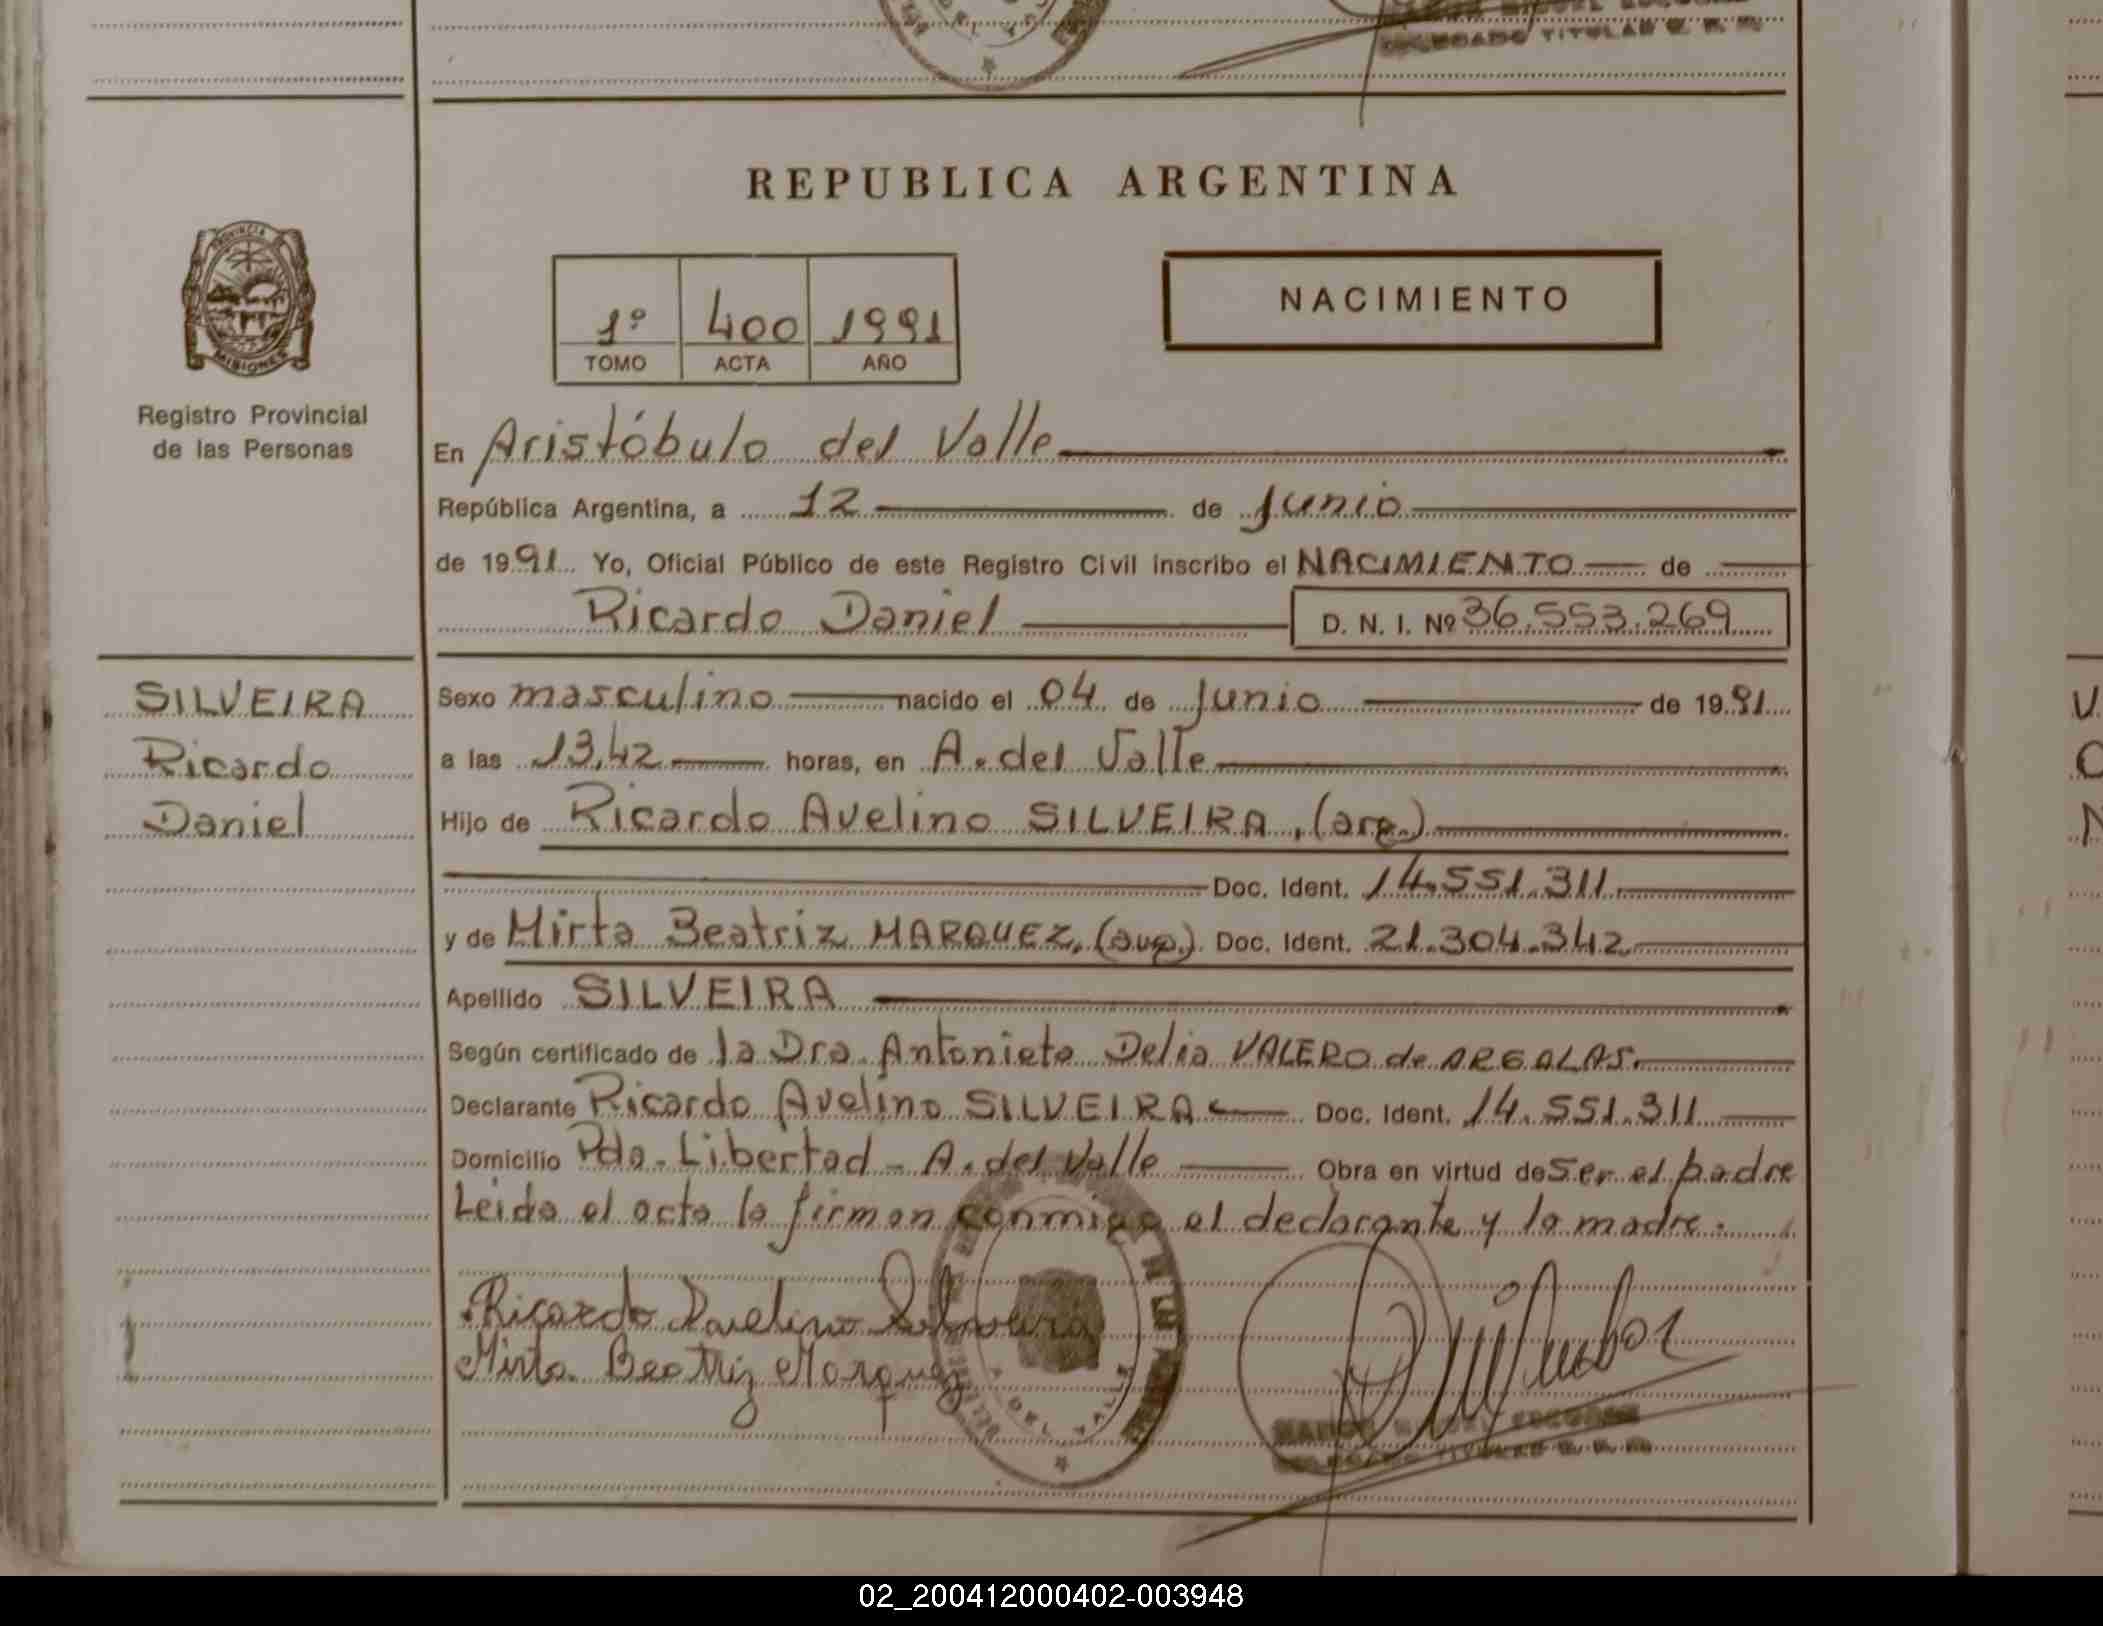 DELEGADO TITULAR R. P. P.
REPUBLICA ARGENTINA
PROVINCIA
MISIONES
Registro Provincial
de las Personas
1º 400 1991
TOMO ACTA AÑO
NACIMIENTO
En Aristóbulo del Valle
República Argentina, a 12 de Junio
de 1991 Yo, Oficial Público de este Registro Civil inscribo el NACIMIENTO de
Ricardo Daniel D. N. I. Nº 36.553.269
SILVEIRA
Ricardo
Daniel
Sexo masculino nacido el 04 de Junio de 1991
a las 13,42 horas, en A. del Valle
Hijo de Ricardo Avelino SILVEIRA, (arg.)
Doc. Ident. 14.551.311
y de Mirta Beatriz MARQUEZ, (arg.) Doc. Ident. 21.304.342
Apellido SILVEIRA
Según certificado de la Dra. Antonieta Delia VALERO de ARGALAS.
Declarante Ricardo Avelino SILVEIRA Doc. Ident. 14.551.311
Domicilio Pdo. Libertad - A. del Valle Obra en virtud de Ser el padre
Leida el acta la firman conmigo el declarante y la madre.
Ricardo Avelino Silveira
Mirta Beatriz Marquez
DEL VALLE
DELEGADO TITULAR R. P. P.
02_200412000402-003948